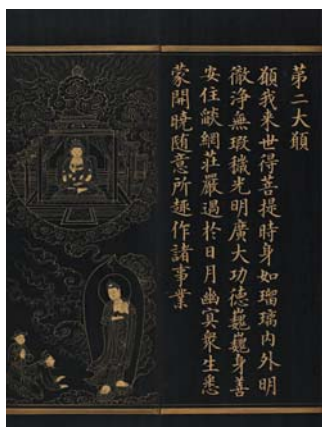 第二大願
願我来世得菩提時身如瑠璃内外明
徹淨無瑕穢光明廣大功德巍巍身善
安住𦦨網莊嚴過於日月幽冥衆生悉
蒙開曉随意所趣作諸事業